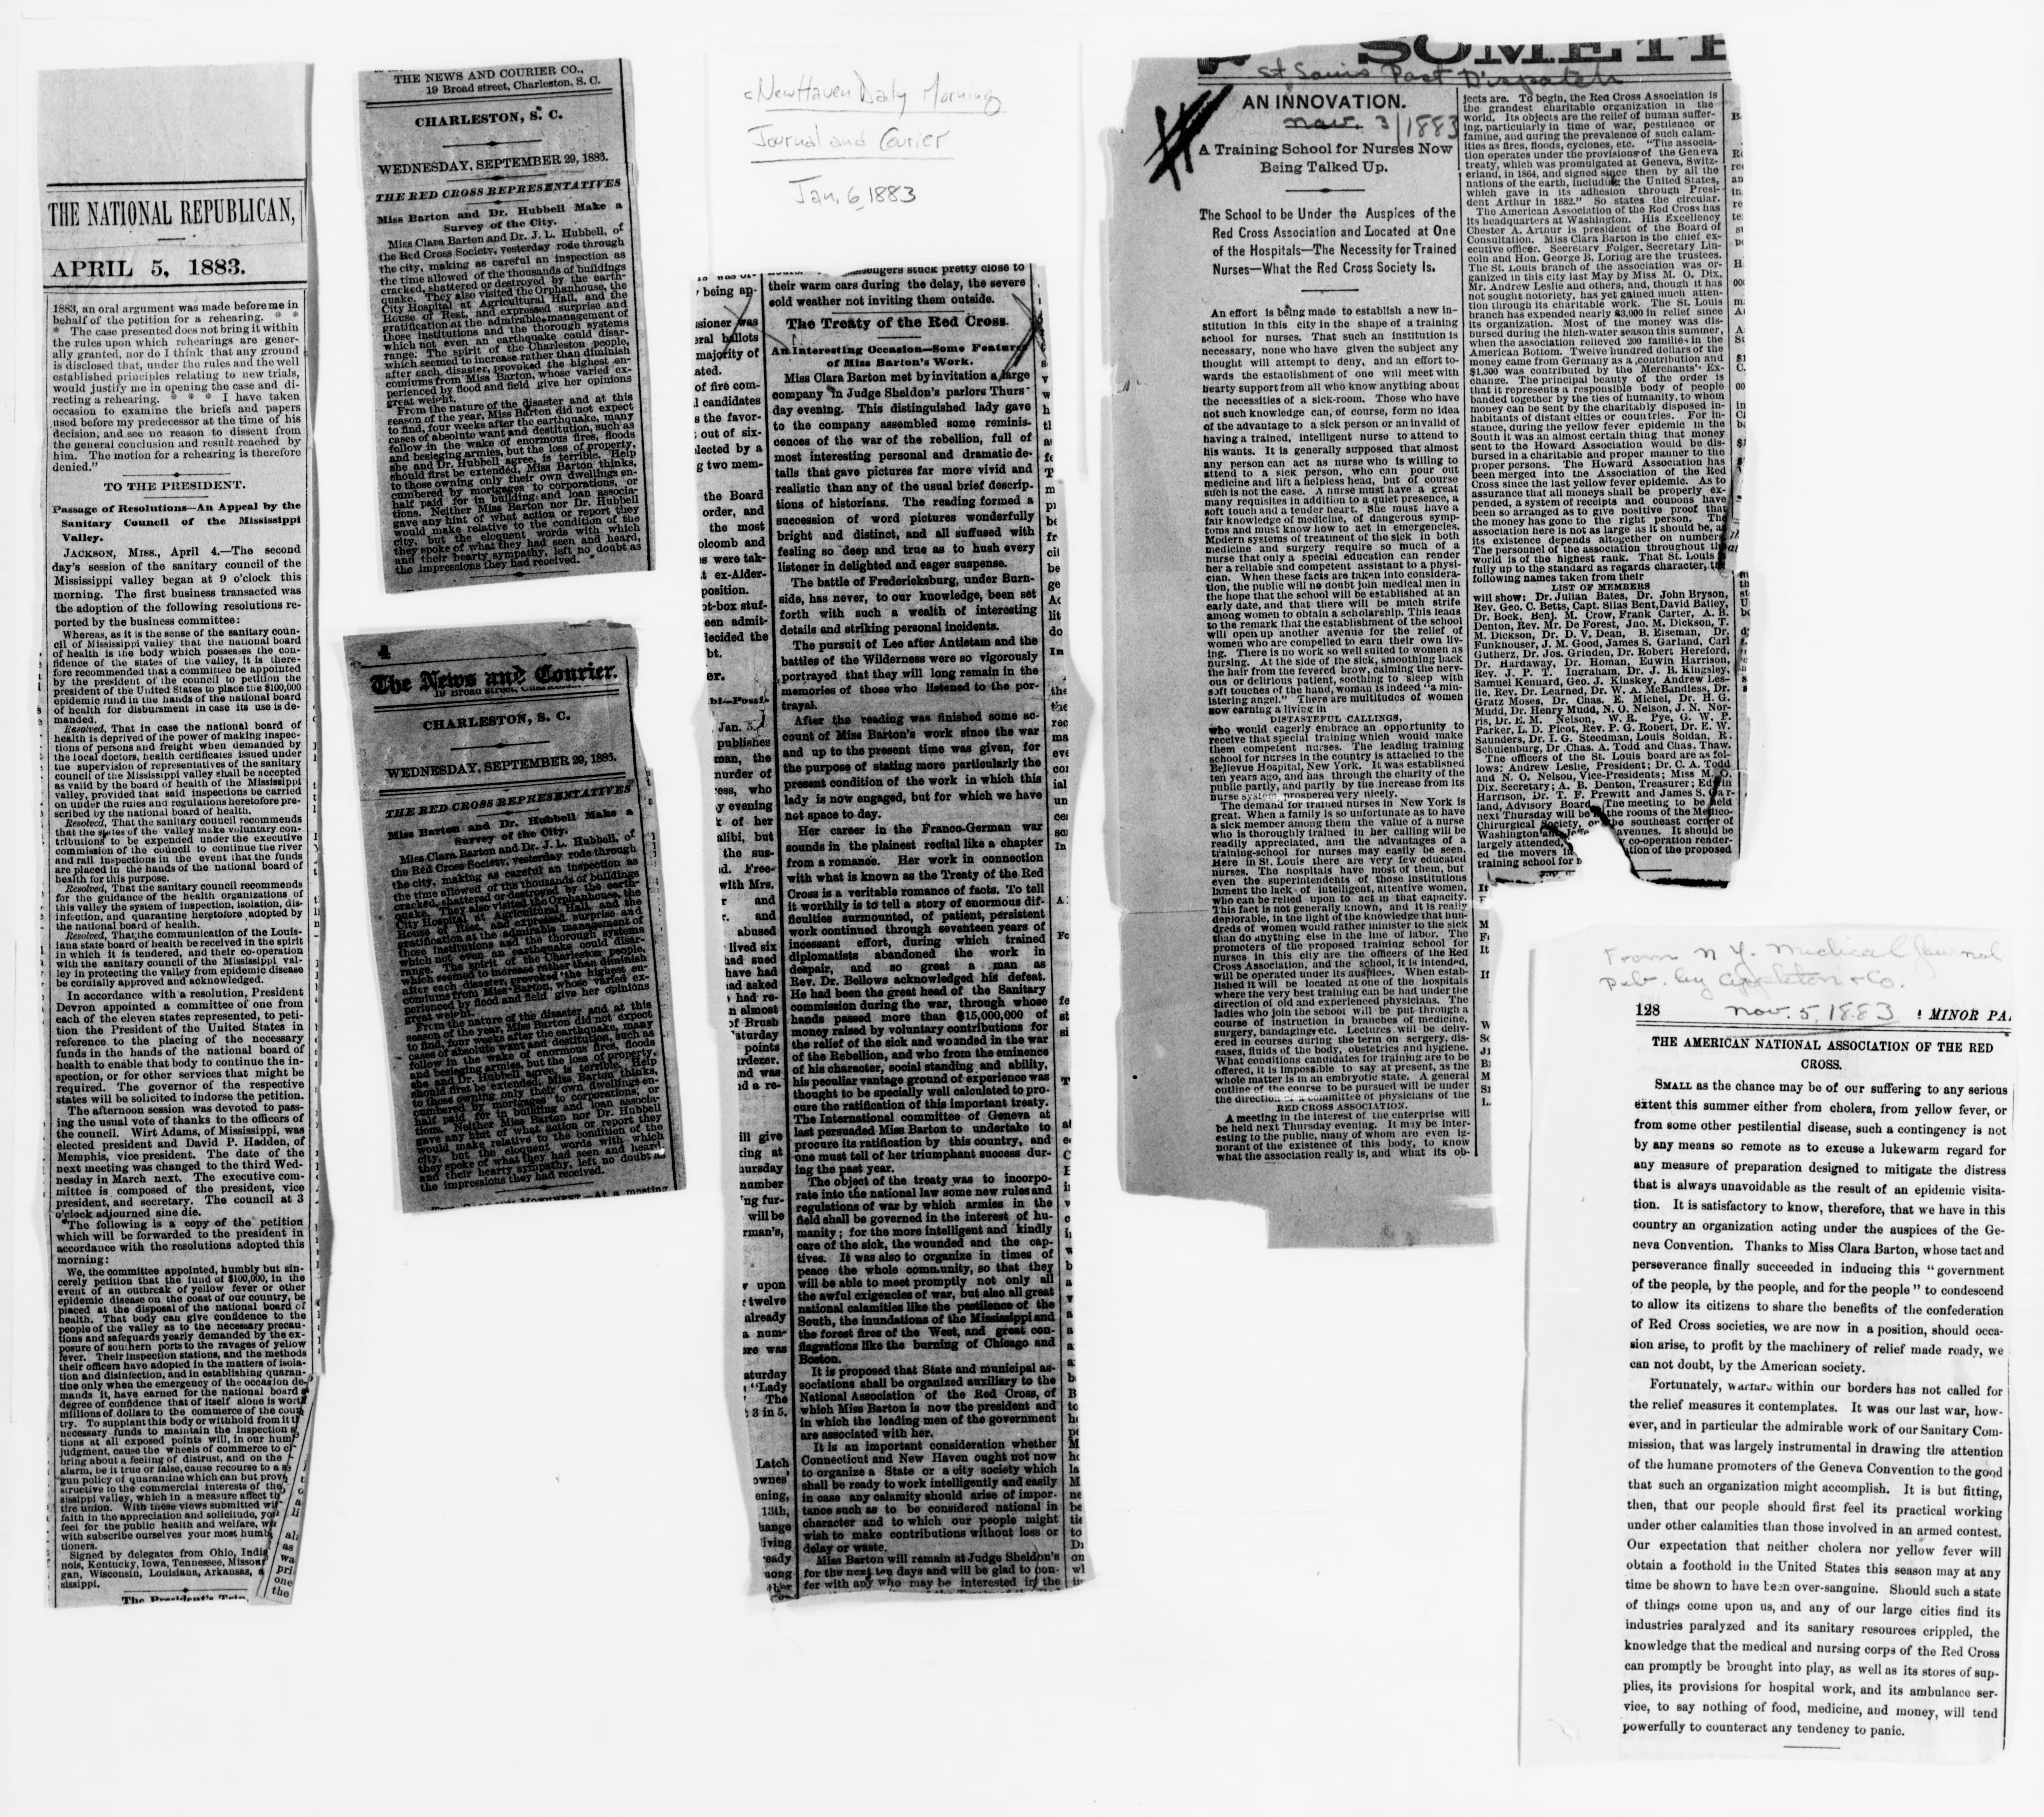 THE NATIONAL REPUBLICAN,
APRIL 5, 1883.
1883, an oral argument was made before me in
behalf of the petition for a rehearing. * *
* The case presented does not bring it within
the rules upon which rehearings are gener-
ally granted, nor do I think that any ground
is disclosed that, under the rules and the well
established principles relating to new trials,
would justify me in opening the case and di-
recting a rehearing. * * * I have taken
occasion to examine the briefs and papers
used before my predecessor at the time of his
decision, and see no reason to dissent from
the general conclusion and result reached by
him. The motion for a rehearing is therefore
denied."
TO THE PRESIDENT.
Passage of Resolutions—An Appeal by the
Sanitary Council of the Mississippi
Valley.
JACKSON, MISS., April 4.—The second
day's session of the sanitary council of the
Mississippi valley began at 9 o'clock this
morning. The first business transacted was
the adoption of the following resolutions re-
ported by the business committee:
Whereas, as it is the sense of the sanitary coun-
cil of Mississippi valley that the national board
of health is the body which possesses the con-
fidence of the states of the valley, it is there-
fore recommended that a committee be appointed
by the president of the council to petition the
president of the United States to place the $100,000
epidemic fund in the hands of the national board
of health for disbursment in case its use is de-
manded.
Resolved, That in case the national board of
health is deprived of the power of making inspec-
tions of persons and freight when demanded by
the local doctors, health certificates issued under
the supervision of representatives of the sanitary
council of the Mississippi valley shall be accepted
as valid by the board of health of the Mississippi
valley, provided that said inspections be carried
on under the rules and regulations heretofore pre-
scribed by the national board of health.
Resolved, That the sanitary council recommends
that the states of the valley make voluntary con-
tributions to be expended under the executive
commission of the council to continue the river
and rail inspections in the event that the funds
are placed in the hands of the national board of
health for this purpose.
Resolved, That the sanitary council recommends
for the guidance of the health organizations of
this valley the system of inspection, isolation, dis-
infection, and quarantine heretofore adopted by
the national board of health.
Resolved, That the communication of the Louis-
iana state board of health be received in the spirit
in which it is tendered, and their co-operation
with the sanitary council of the Mississippi val-
ley in protecting the valley from epidemic disease
be cordially approved and acknowledged.
In accordance with a resolution, President
Devron appointed a committee of one from
each of the eleven states represented, to peti-
tion the President of the United States in
reference to the placing of the necessary
funds in the hands of the national board of
health to enable that body to continue the in-
spection, or for other services that might be
required. The governor of the respective
states will be solicited to indorse the petition.
The afternoon session was devoted to pass-
ing the usual vote of thanks to the officers of
the council. Wirt Adams, of Mississippi, was
elected president and David P. Hadden, of
Memphis, vice president. The date of the
next meeting was changed to the third Wed-
nesday in March next. The executive com-
mittee is composed of the president, vice
president, and secretary. The council at 3
o'clock adjourned sine die.
The following is a copy of the petition
which will be forwarded to the president in
accordance with the resolutions adopted this
morning:
We, the committee appointed, humbly but sin-
cerely petition that the fund of $100,000, in the
event of an outbreak of yellow fever or other
epidemic disease on the coast of our country, be
placed at the disposal of the national board of
health. That body can give confidence to the
people of the valley as to the necessary precau-
tions and safeguards yearly demanded by the ex-
posure of southern ports to the ravages of yellow
fever. Their inspection stations, and the methods
their officers have adopted in the matters of isola-
tion and disinfection, and in establishing quaran-
tine only when the emergency of the occasion de-
mands it, have earned for the national board a
degree of confidence that of itself alone is worth
millions of dollars to the commerce of the coun
try. To supplant this body or withhold from it t
necessary funds to maintain the inspection s
tions at all exposed points will, in our humb
judgment, cause the wheels of commerce to cl
bring about a feeling of distrust, and on the
alarm, be it true or false, cause recourse to a s
gun policy of quarantine which can but prov
structive to the commercial interests of the
sissippi valley, which in a measure affect th
tire union. With these views submitted wi
faith in the appreciation and solicitude, yo
feel for the public health and welfare, w
with subscribe ourselves your most humb
tioners.
Signed by delegates from Ohio, Indi
nois, Kentucky, Iowa, Tennessee, Missour
gan, Wisconsin, Louisiana, Arkansas, a
sissippi.
The President's Trip.
THE NEWS AND COURIER CO.,
19 Broad street, Charleston, S. C.
CHARLESTON, S. C.
WEDNESDAY, SEPTEMBER 29, 1883.
THE RED CROSS REPRESENTATIVES
Miss Barton and Dr. Hubbell Make a
Survey of the City.
Miss Clara Barton and Dr. J. L. Hubbell, of
the Red Cross Society, yesterday rode through
the city, making as careful an inspection as
the time allowed of the thousands of buildings
cracked, shattered or destroyed by the earth-
quake. They also visited the Orphanhouse, the
City Hospital at Agricultural Hall, and the
House of Rest, and expressed surprise and
gratification at the admirable management of
those institutions and the thorough systems
which not even an earthquake could disar-
range. The spirit of the Charleston people,
which seemed to increase rather than diminish
after each disaster, provoked the highest en-
comiums from Miss Barton, whose varied ex-
perienced by flood and field give her opinions
great weight.
From the nature of the disaster and at this
season of the year, Miss Barton did not expect
to find, four weeks after the earthquake, many
cases of absolute want and destitution, such as
follow in the wake of enormous fires, floods
and besieging armies, but the loss of property,
she and Dr. Hubbell agree, is terrible. Help
should first be extended, Miss Barton thinks,
to those owning only their own dwellings en-
cumbered by mortgages to corporations, or
half paid for in building and loan associa-
tions. Neither Miss Barton nor Dr. Hubbell
gave any hint of what action or report they
would make relative to the condition of the
city, but the eloquent words with which
they spoke of what they had seen and heard,
and their hearty sympathy, left no doubt as
the impressions they had received.
4
The News and Courier.
19 Broad street, Charleston
CHARLESTON, S. C.
WEDNESDAY, SEPTEMBER 29, 1883.
THE RED CROSS REPRESENTATIVES
Miss Barton and Dr. Hubbell Make a
Survey of the City.
Miss Clara Barton and Dr. J. L. Hubbell, of
the Red Cross Society, yesterday rode through
the city, making as careful an inspection as
the time allowed of the thousands of buildings
cracked, shattered or destroyed by the earth-
quake. They also visited the Orphanhouse, the
City Hospital at Agricultural Hall, and the
House of Rest, and expressed surprise and
gratification at the admirable management of
those institutions and the thorough systems
which not even an earthquake could disar-
range. The spirit of the Charleston people,
which seemed to increase rather than diminish
after each disaster, provoked the highest en-
comiums from Miss Barton, whose varied ex-
perienced by flood and field give her opinions
great weight.
From the nature of the disaster and at this
season of the year, Miss Barton did not expect
to find, four weeks after the earthquake, many
cases of absolute want and destitution, such as
follow in the wake of enormous fires, floods
and besieging armies, but the loss of property,
she and Dr. Hubbell agree, is terrible. Help
should first be extended, Miss Barton thinks,
to those owning only their own dwellings en-
cumbered by mortgages to corporations, or
half paid for in building and loan associa-
tions. Neither Miss Barton nor Dr. Hubbell
gave any hint of what action or report they
would make relative to the condition of the
city, but the eloquent words with which
they spoke of what they had seen and heard,
and their hearty sympathy, left no doubt as
the impressions they had received.
At a meeting
New Haven Daily Morning
Journal and Courier
Jan. 6, 1883
ssengers stuck pretty close to
their warm cars during the delay, the severe
cold weather not inviting them outside.
The Treaty of the Red Cross.
An Interesting Occasion—Some Features
of Miss Barton's Work.
Miss Clara Barton met by invitation a large
company in Judge Sheldon's parlors Thurs-
day evening. This distinguished lady gave
to the company assembled some reminis-
cences of the war of the rebellion, full of
most interesting personal and dramatic de-
tails that gave pictures far more vivid and
realistic than any of the usual brief descrip-
tions of historians. The reading formed a
succession of word pictures wonderfully
bright and distinct, and all suffused with
feeling so deep and true as to hush every
listener in delighted and eager suspense.
The battle of Fredericksburg, under Burn-
side, has never, to our knowledge, been set
forth with such a wealth of interesting
details and striking personal incidents.
The pursuit of Lee after Antietam and the
battles of the Wilderness were so vigorously
portrayed that they will long remain in the
memories of those who listened to the por-
trayal.
After the reading was finished some ac-
count of Miss Barton's work since the war
and up to the present time was given, for
the purpose of stating more particularly the
present condition of the work in which this
lady is now engaged, but for which we have
not space to day.
Her career in the Franco-German war
sounds in the plainest recital like a chapter
from a romance. Her work in connection
with what is known as the Treaty of the Red
Cross is a veritable romance of facts. To tell
it worthily is to tell a story of enormous dif-
ficulties surmounted, of patient, persistent
work continued through seventeen years of
incessant effort, during which trained
diplomatists abandoned the work in
despair, and so great a man as
Rev. Dr. Bellows acknowledged his defeat.
He had been the great head of the Sanitary
commission during the war, through whose
hands passed more than $15,000,000 of
money raised by voluntary contributions for
the relief of the sick and wounded in the war
of the Rebellion, and who from the eminence
of his character, social standing and ability,
his peculiar vantage ground of experience was
thought to be specially well calculated to pro-
cure the ratification of this important treaty.
The International committee of Geneva at
last persuaded Miss Barton to undertake to
procure its ratification by this country, and
one must tell of her triumphant success dur-
ing the past year.
The object of the treaty was to incorpo-
rate into the national law some new rules and
regulations of war by which armies in the
field shall be governed in the interest of hu-
manity; for the more intelligent and kindly
care of the sick, the wounded and the cap-
tives. It was also to organize in times of
peace the whole community, so that they
will be able to meet promptly not only all
the awful exigencies of war, but also all great
national calamities like the pestilence of the
South, the inundations of the Mississippi and
the forest fires of the West, and great con-
flagrations like the burning of Chicago and
Boston.
It is proposed that State and municipal as-
sociations shall be organized auxiliary to the
National Association of the Red Cross, of
which Miss Barton is now the president and
in which the leading men of the government
are associated with her.
It is an important consideration whether
Connecticut and New Haven ought not now
to organize a State or a city society which
shall be ready to work intelligently and easily
in case any calamity should arise of impor-
tance such as to be considered national in
character and to which our people might
wish to make contributions without loss or
delay or waste.
Miss Barton will remain at Judge Sheldon's
for the next ten days and will be glad to con-
fer with any who may be interested in the
SOMETH
St Louis Post Dispatch
AN INNOVATION.
Nov. 3/1883
A Training School for Nurses Now
Being Talked Up.
The School to be Under the Auspices of the
Red Cross Association and Located at One
of the Hospitals—The Necessity for Trained
Nurses—What the Red Cross Society Is.
An effort is being made to establish a new in-
stitution in this city in the shape of a training
school for nurses. That such an institution is
necessary, none who have given the subject any
thought will attempt to deny, and an effort to-
wards the establishment of one will meet with
hearty support from all who know anything about
the necessities of a sick-room. Those who have
not such knowledge can, of course, form no idea
of the advantage to a sick person or an invalid of
having a trained, intelligent nurse to attend to
his wants. It is generally supposed that almost
any person can act as nurse who is willing to
attend to a sick person, who can pour out
medicine and lift a helpless head, but of course
such is not the case. A nurse must have a great
many requisites in addition to a quiet presence, a
soft touch and a tender heart. She must have a
fair knowledge of medicine, of dangerous symp-
toms and must know how to act in emergencies.
Modern systems of treatment of the sick in both
medicine and surgery require so much of a
nurse that only a special education can render
her a reliable and competent assistant to a physi-
cian. When these facts are taken into considera-
tion, the public will no doubt join medical men in
the hope that the school will be established at an
early date, and that there will be much strife
among women to obtain a scholarship. This leads
to the remark that the establishment of the school
will open up another avenue for the relief of
women who are compelled to earn their own liv-
ing. There is no work so well suited to women as
nursing. At the side of the sick, smoothing back
the hair from the fevered brow, calming the nerv-
ous or delirious patient, soothing to sleep with
soft touches of the hand, woman is indeed "a min-
istering angel." There are multitudes of women
now earning a living in
DISTASTEFUL CALLINGS,
who would eagerly embrace an opportunity to
receive that special training which would make
them competent nurses. The leading training
school for nurses in the country is attached to the
Bellevue Hospital, New York. It was established
ten years ago, and has through the charity of the
public partly, and partly by the increase from its
nurse system, prospered very nicely.
The demand for trained nurses in New York is
great. When a family is so unfortunate as to have
a sick member among them the value of a nurse
who is thoroughly trained in her calling will be
readily appreciated, and the advantages of a
training-school for nurses may easily be seen.
Here in St. Louis there are very few educated
nurses. The hospitals have most of them, but
even the superintendents of those institutions
lament the lack of intelligent, attentive women,
who can be relied upon to act in that capacity.
This fact is not generally known, and it is really
deplorable, in the light of the knowledge that hun-
dreds of women would rather minister to the sick
than do anything else in the line of labor. The
promoters of the proposed training school for
nurses in this city are the officers of the Red
Cross Association, and the school, it is intended,
will be operated under its auspices. When estab-
lished it will be located at one of the hospitals
where the very best training can be had under the
direction of old and experienced physicians. The
ladies who join the school will be put through a
course of instruction in branches of medicine,
surgery, bandaging etc. Lectures will be deliv-
ered in courses during the term on surgery, dis-
eases, fluids of the body, obstetrics and hygiene.
What conditions candidates for training are to be
offered, it is impossible to say at present, as the
whole matter is in an embryotic state. A general
outline of the course to be pursued will be under
the direction of a committee of physicians of the
RED CROSS ASSOCIATION.
A meeting in the interest of the enterprise will
be held next Thursday evening. It may be inter-
esting to the public, many of whom are even ig-
norant of the existence of this body, to know
what the association really is, and what its ob-
jects are. To begin, the Red Cross Association is
the grandest charitable organization in the
world. Its objects are the relief of human suffer-
ing, particularly in time of war, pestilence or
famine, and during the prevalence of such calam-
ities as fires, floods, cyclones, etc. "The associa-
tion operates under the provisions of the Geneva
treaty, which was promulgated at Geneva, Switz-
erland, in 1864, and signed since then by all the
nations of the earth, including the United States,
which gave in its adhesion through Presi-
dent Arthur in 1882." So states the circular.
The American Association of the Red Cross has
its headquarters at Washington. His Excellency
Chester A. Arthur is president of the Board of
Consultation. Miss Clara Barton is the chief ex-
ecutive officer. Secretary Folger, Secretary Lin-
coln and Hon. George B. Loring are the trustees.
The St. Louis branch of the association was or-
ganized in this city last May by Miss M. O. Dix,
Mr. Andrew Leslie and others, and, though it has
not sought notoriety, has yet gained much atten-
tion through its charitable work. The St. Louis
branch has expended nearly $3,000 in relief since
its organization. Most of the money was dis-
bursed during the high-water season this summer,
when the association relieved 200 families in the
American Bottom. Twelve hundred dollars of the
money came from Germany as a contribution and
$1,300 was contributed by the Merchants' Ex-
change. The principal beauty of the order is
that it represents a responsible body of people
banded together by the ties of humanity, to whom
money can be sent by the charitably disposed in-
habitants of distant cities or countries. For in-
stance, during the yellow fever epidemic in the
South it was an almost certain thing that money
sent to the Howard Association would be dis-
bursed in a charitable and proper manner to the
proper persons. The Howard Association has
been merged into the Association of the Red
Cross since the last yellow fever epidemic. As to
assurance that all moneys shall be properly ex-
pended, a system of receipts and coupons have
been so arranged as to give positive proof that
the money has gone to the right person. The
association here is not as large as it should be, as
its existence depends altogether on numbers.
The personnel of the association throughout th
world is of the highest rank. That St. Louis
fully up to the standard as regards character, t
following names taken from their
LIST OF MEMBERS
will show: Dr. Julian Bates, Dr. John Bryson,
Rev. Geo. C. Betts, Capt. Silas Bent, David Bailey,
Dr. Bock, Benj. M. Crow, Frank Carter, A. B.
Denton, Rev. Mr. De Forest, Jno. M. Dickson, T.
M. Dickson, Dr. D. V. Dean, B. Eiseman, Dr.
Funkhouser, J. M. Good, James S. Garland, Carl
Gutherz, Dr. Jos. Grinden, Dr. Robert Hereford,
Dr. Hardaway, Dr. Homan, Edwin Harrison,
Rev. J. P. T. Ingraham, Dr. J. H. Kingsley,
Samuel Kennard, Geo. J. Kinskey, Andrew Les-
lie, Rev. Dr. Learned, Dr. W. A. McBandless, Dr.
Gratz Moses, Dr. Chas. E. Michel, Dr. H. G.
Mudd, Dr. Henry Mudd, N. O. Nelson, J. N. Nor-
ris, Dr. E. M. Nelson, W. R. Pye, G. W. P.
Parker, L. D. Picot, Rev. P. G. Robert, Dr. E. W.
Saunders, Dr. I. G. Steedman, Louis Soldan, R.
Schulenburg, Dr. Chas. A. Todd and Chas. Thaw.
The officers of the St. Louis board are as fol-
lows: Andrew Leslie, President; Dr. C. A. Todd
and N. O. Nelson, Vice-Presidents; Miss M. O.
Dix, Secretary; A. B. Denton, Treasurer; Edwin
Harrison, Dr. T. F. Prewitt and James S. Gar-
land, Advisory Board. The meeting to be held
next Thursday will be the rooms of the Medico-
Chirurgical Society, on the southeast corner of
Washington and avenues. It should be
largely attended, y co-operation render-
ed the movers in tion of the proposed
training school for
From N Y. Medical Journal
pub. by Appleton & Co.
128 Nov. 5, 1883 MINOR PA
THE AMERICAN NATIONAL ASSOCIATION OF THE RED
CROSS.
SMALL as the chance may be of our suffering to any serious
extent this summer either from cholera, from yellow fever, or
from some other pestilential disease, such a contingency is not
by any means so remote as to excuse a lukewarm regard for
any measure of preparation designed to mitigate the distress
that is always unavoidable as the result of an epidemic visita-
tion. It is satisfactory to know, therefore, that we have in this
country an organization acting under the auspices of the Ge-
neva Convention. Thanks to Miss Clara Barton, whose tact and
perseverance finally succeeded in inducing this "government
of the people, by the people, and for the people" to condescend
to allow its citizens to share the benefits of the confederation
of Red Cross societies, we are now in a position, should occa-
sion arise, to profit by the machinery of relief made ready, we
can not doubt, by the American society.
Fortunately, warfare within our borders has not called for
the relief measures it contemplates. It was our last war, how-
ever, and in particular the admirable work of our Sanitary Com-
mission, that was largely instrumental in drawing the attention
of the humane promoters of the Geneva Convention to the good
that such an organization might accomplish. It is but fitting,
then, that our people should first feel its practical working
under other calamities than those involved in an armed contest.
Our expectation that neither cholera nor yellow fever will
obtain a foothold in the United States this season may at any
time be shown to have been over-sanguine. Should such a state
of things come upon us, and any of our large cities find its
industries paralyzed and its sanitary resources crippled, the
knowledge that the medical and nursing corps of the Red Cross
can promptly be brought into play, as well as its stores of sup-
plies, its provisions for hospital work, and its ambulance ser-
vice, to say nothing of food, medicine, and money, will tend
powerfully to counteract any tendency to panic.